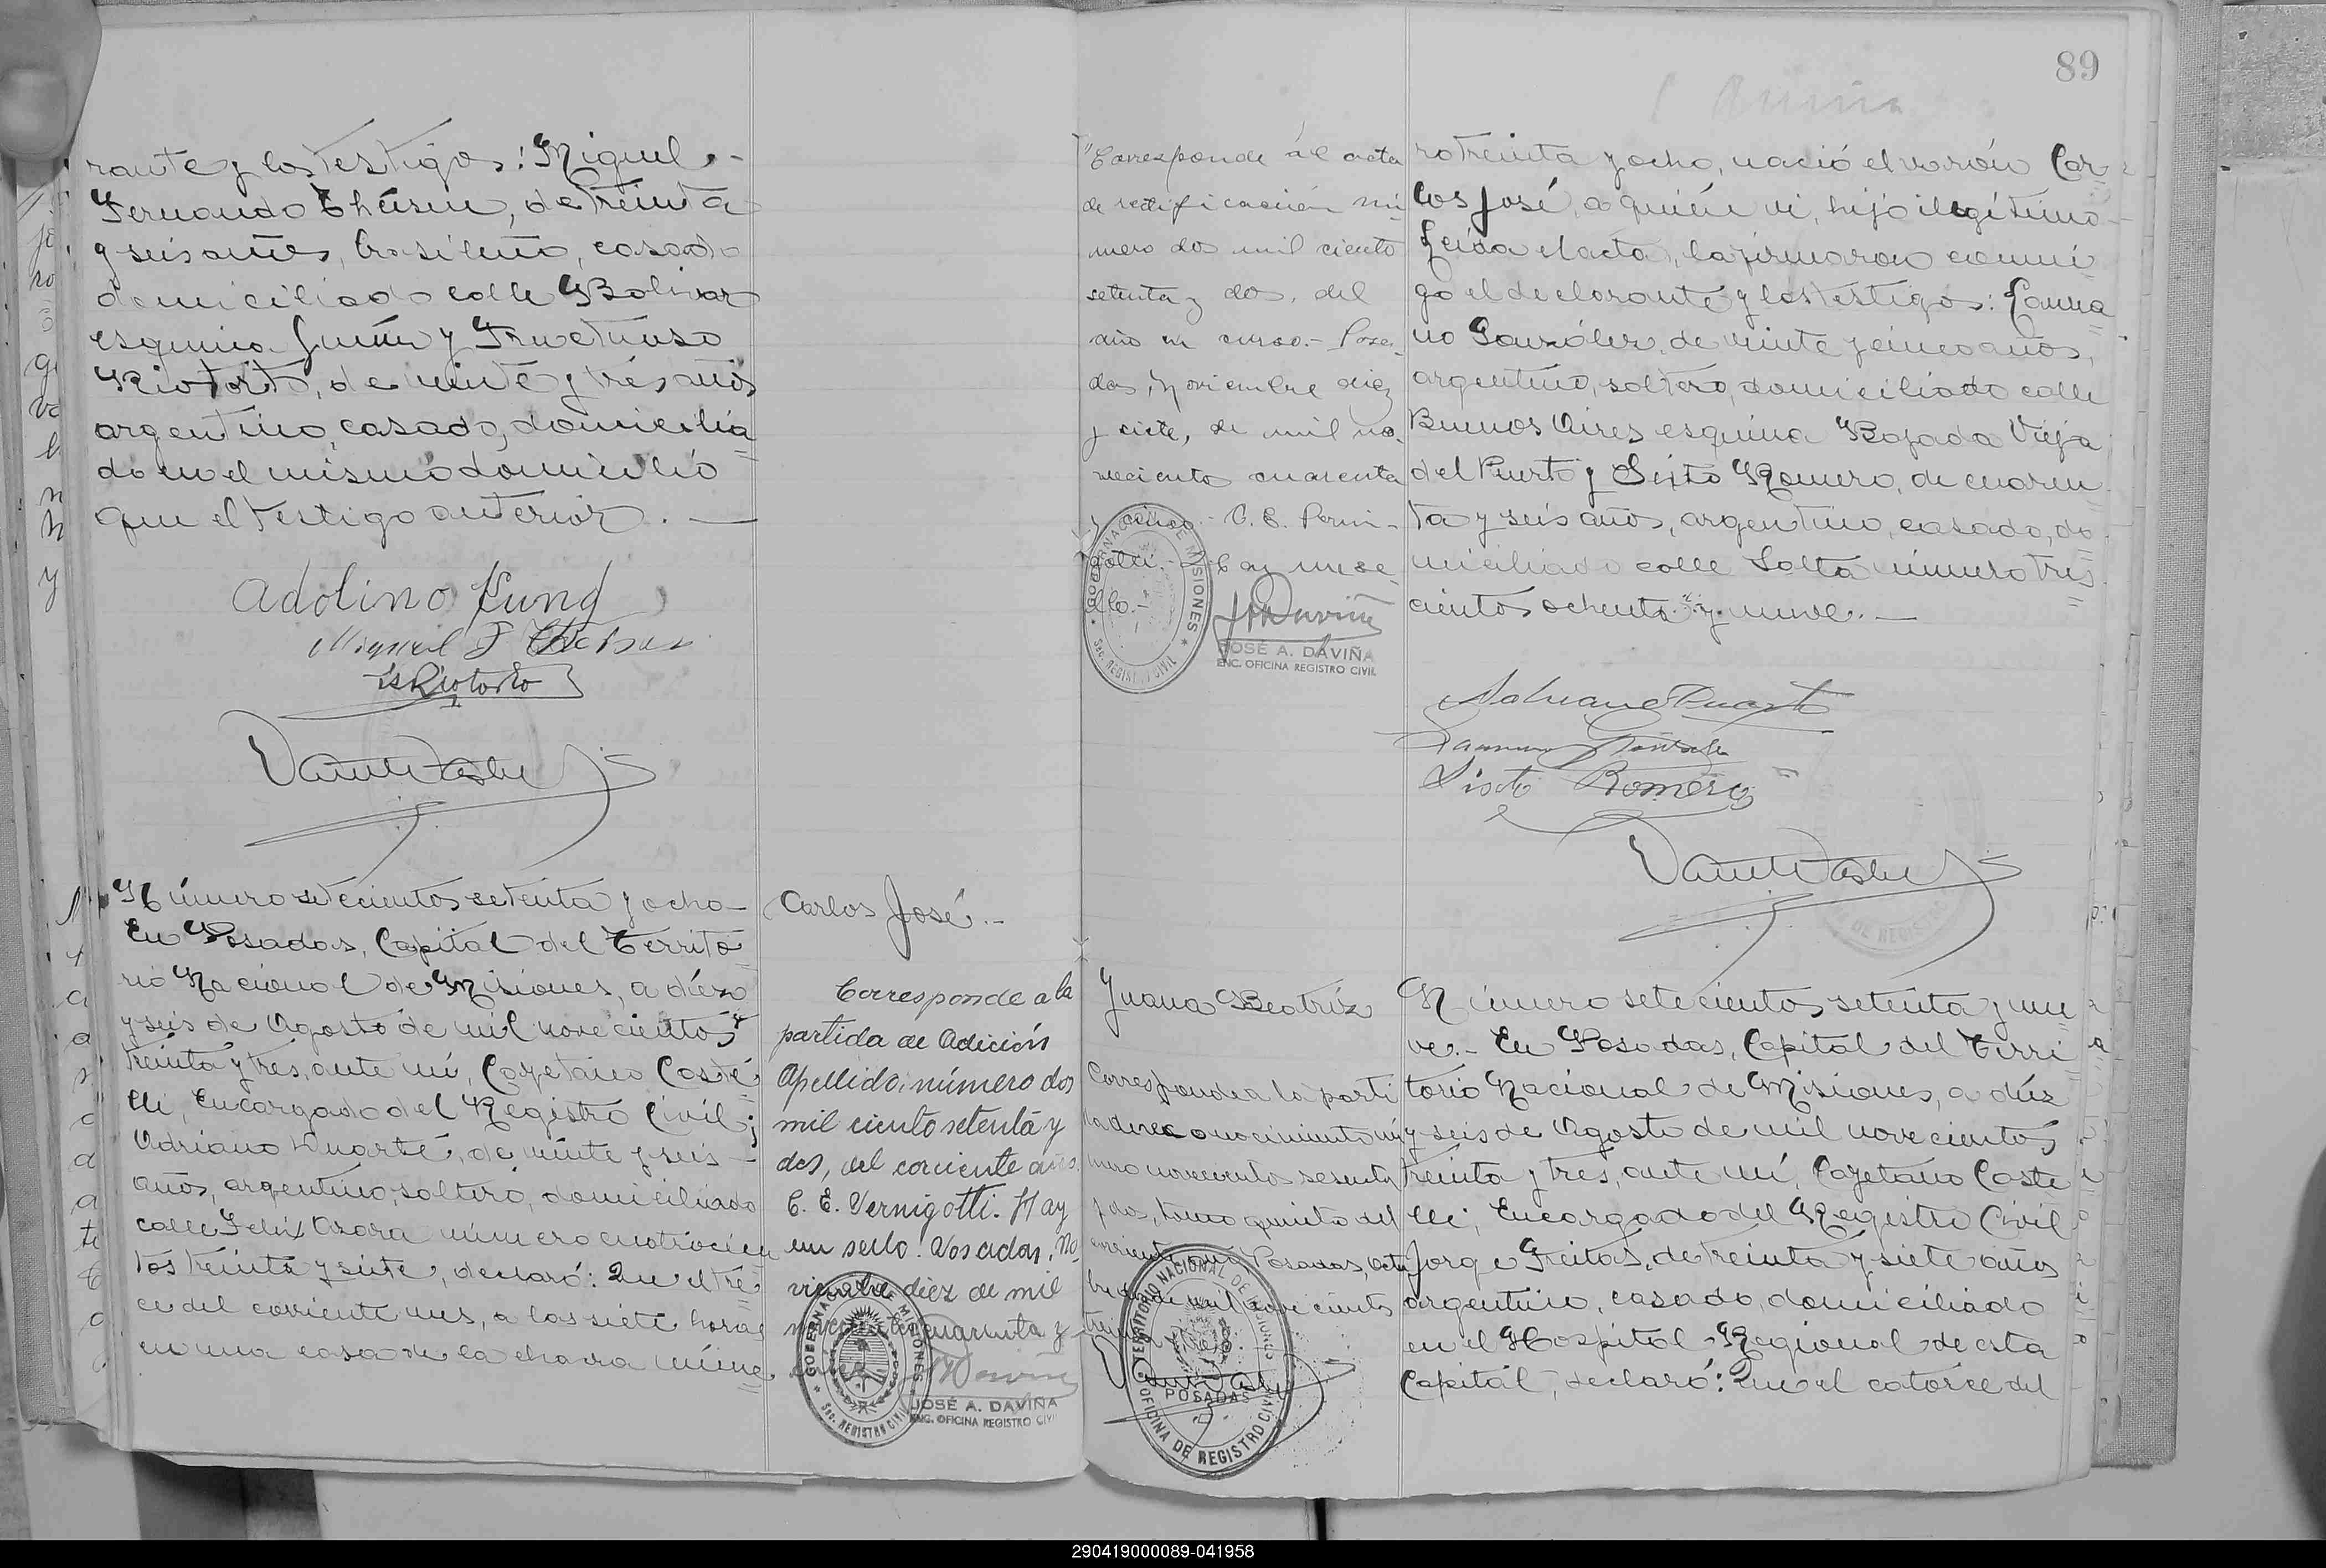 89
rante y los testigos: Miguel
Fernando Thürin, de treinta
y seis años, brasileño, casado
domiciliado calle Bolivar
esquina Junín y Fructuoso
Riotorto, de veinte y tres años
argentino, casado, domicilia
do en el mismo domicilio
que el testigo anterior. —
Adolino Kung
Miguel F
Riotorto
Número setecientos setenta y ocho—
En Posadas, Capital del Territo
rio Nacional de Misiones, a diez
y seis de Agosto de mil novecientos
treinta y tres, ante mí, Cayetano Caste
lli, Encargado del Registro Civil;
Adriano Duarte, de veinte y seis —
años, argentino, soltero, domiciliado
calle Felix Azara número cuatrocien
tos treinta y siete, declaró: Que el tre
ce del corriente mes, a las siete horas
en una casa de la chacra núme
Carlos José.-
Corresponde a la
partida de Adición
Apellido; número dos
mil ciento setenta y
dos, del corriente año.
C. E. Vernigotti. Hay
un sello. Posadas, No
viembre diez de mil
novecientos cuarenta y
GOBERNACION DE MISIONES
Sec. REGISTRO CIVIL
JOSÉ A. DAVIÑA
ENC. OFICINA REGISTRO CIVIL
"Corresponde al acta
de rectificación nú
mero dos mil ciento
setenta y dos, del
año en curso.- Posa-
das, Noviembre diez
y siete, de mil no-
vecientos cuarenta
y cinco.-
GOBERNACION DE MISIONES
Sec. REGISTRO CIVIL
JOSÉ A. DAVIÑA
ENC. OFICINA REGISTRO CIVIL
ro treinta y ocho, nació el varón Car
los José, a quién vi, hijo ilegítimo—
Leída el acta, la firmaron conmi
go el declarante y los testigos:
no González, de veinte y cinco años,
argentino, soltero, domiciliado calle
Buenos Aires esquina Bajada Vieja
del Puerto y Sixto Romero, de cuaren
ta y seis años, argentino, casado, do
miciliado calle Salta número tres
cientos ochenta y nueve. —
Adriano Duarte
Sixto Romero
Juana Beatríz
Corresponde a la parti
da de reconocimiento nú
mero novecientos sesenta
y dos, tomo quinto del
corriente año Posadas, Octu
bre de mil novecientos
treinta
TERRITORIO NACIONAL DE MISIONES
POSADAS
OFICINA DE REGISTRO CIVIL
Número setecientos setenta y nue
ve.- En Posadas, Capital del Terri
torio Nacional de Misiones, a diez
y seis de Agosto de mil novecientos
treinta y tres, ante mí, Cayetano Caste
lli, Encargado del Registro Civil
Jorge Freitas, de treinta y siete años
argentino, casado, domiciliado
en el Hospital Regional de esta
Capital, declaró: Que el catorce del
290419000089-041958